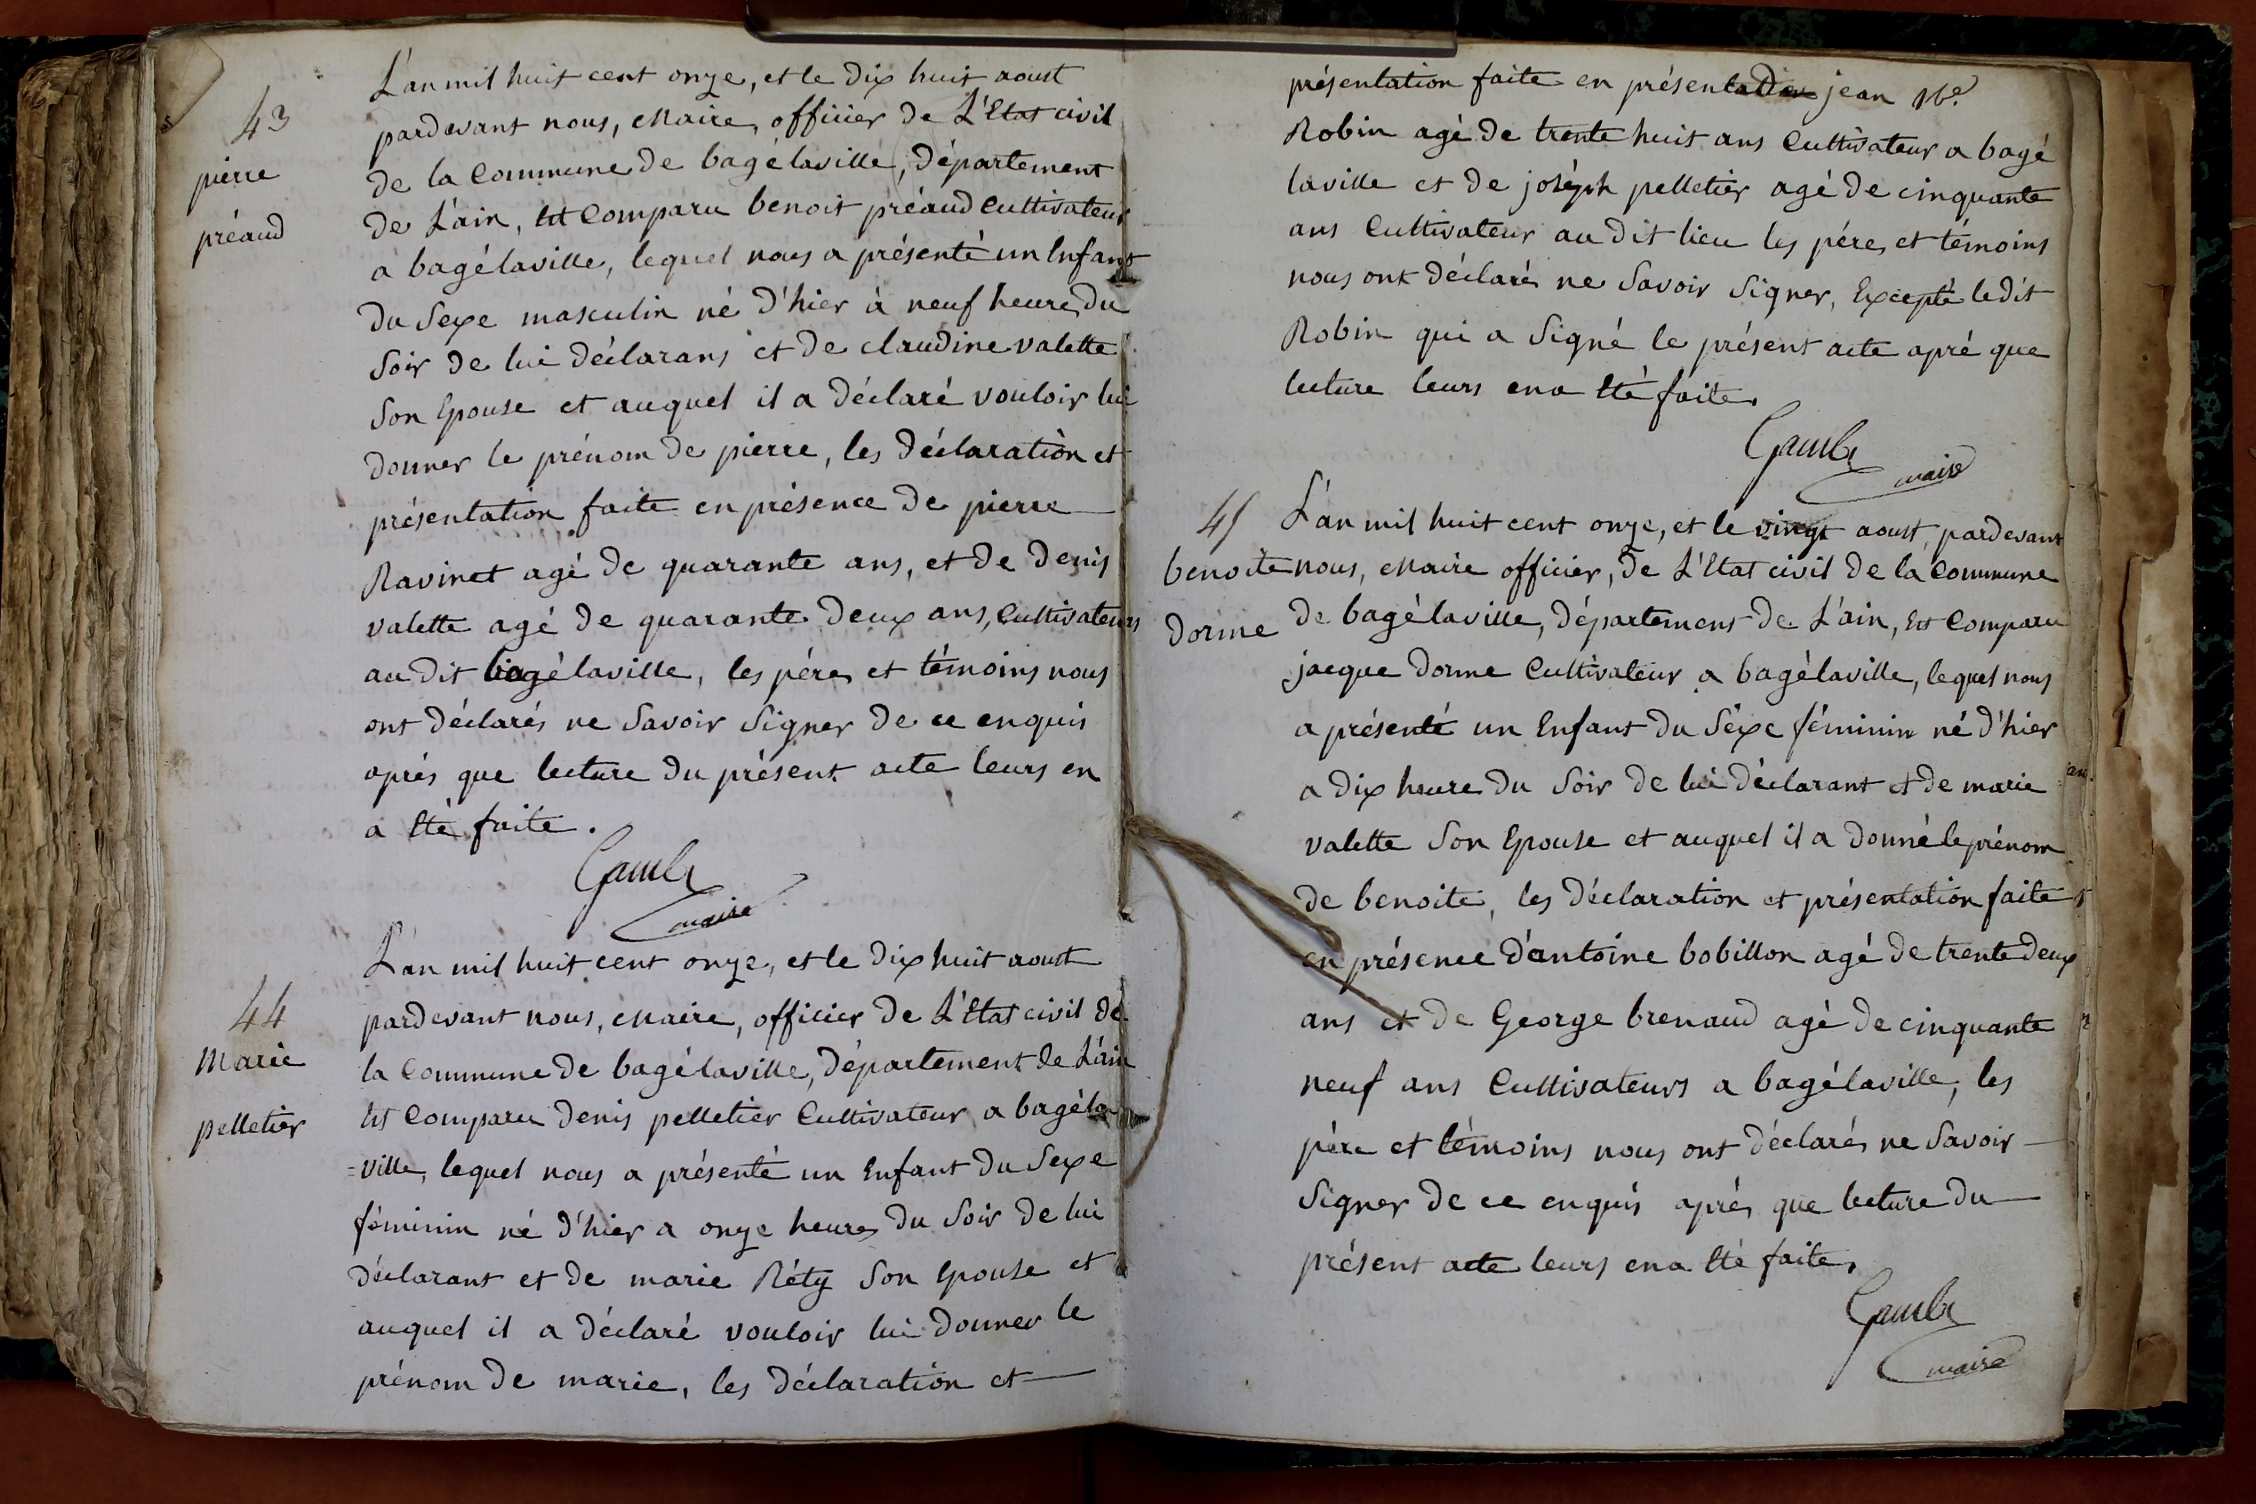 43
pierre
préaud
L'an mil huit cent onze, et le dix huit aoust
pardevant nous, Maire, officier de L'Etat civil
de la Commune de bagélaville, département
de L'ain, Est Comparu benoit préaud Cultivateur
a bagélaville, lequel nous a présenté un Enfant
du Sexe masculin né d'hier à neuf heure du
Soir de lui déclarans et de claudine valette
Son Epouse et auquel il a déclaré vouloir lui
donner le prénom de pierre, les déclaration et
présentation faite en présence de pierre
Ravinet agé de quarante ans, et de denis
valette agé de quarante deux ans, Cultivateurs
au dit bagélaville, les pére et témoins nous
ont déclarés ne Savoir Signer de ce enquis
aprés que lecture du présent acte leurs en
a Eté faite.
maire
44
Marie
pelletier
L'an mil huit cent onze, et le dix huit aoust
pardevant nous, Maire, officier de L'Etat civil de
la Commune de bagélaville, département de L'ain
Est Comparu denis pelletier Cultivateur a bagéla
=ville, lequel nous a présenté un Enfant du Sexe
féminin né d'hier a onze heures du Soir de lui
déclarant et de marie Réty Son Epouse et
auquel il a déclaré vouloir lui donner le
prénom de marie, les déclaration et
présentation faite en jean
Robin agé de trente huit ans Cultivateur a bagé
laville et de joséph pelletier agé de cinquante
ans Cultivateur au dit lieu les pére et témoins
nous ont déclarés ne Savoir Signer, Excepté ledit
Robin qui a Signé le présent acte apré que
lecture leurs en a Eté faite.
maire
45
benoite
dorme
L'an mil huit cent onze, et le vingt aoust, pardevant
nous, Maire officier, de L'Etat civil de la Commune
de bagélaville, département de L'ain, Est Comparu
jacque dorme Cultivateur a bagélaville, lequel nous
a présenté un Enfant du Séxe féminin né d'hier
a dix heure du Soir de lui déclarant et de marie
valette Son Epouse et auquel il a donné le prénom
de benoite, les déclaration et présentation faite
en présence d'antoine bobillon agé de trente deux
ans et de George brenaud agé de cinquante
neuf ans Cultivateurs a bagélaville, les
pére et témoins nous ont déclarés ne Savoir
Signer de ce enquis aprés que lecture du
présent acte leurs en a Eté faite.
maire